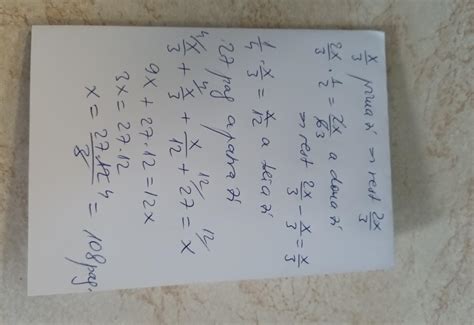 x/3 prima zi ⇒ rest 2x/3
2x/3 · 1/2 = 2x/6 3 a doua zi
⇒ rest 2x/3 - x/3 = x/3
1/4 · x/3 = x/12 a treia zi
27 pag a patra zi
4/ x/3 + 4/ x/3 + x/12 + 12/ 27 = 12/ x
9x + 27·12 = 12x
3x = 27·12
x = 27·12 4/3 = 108 pag.